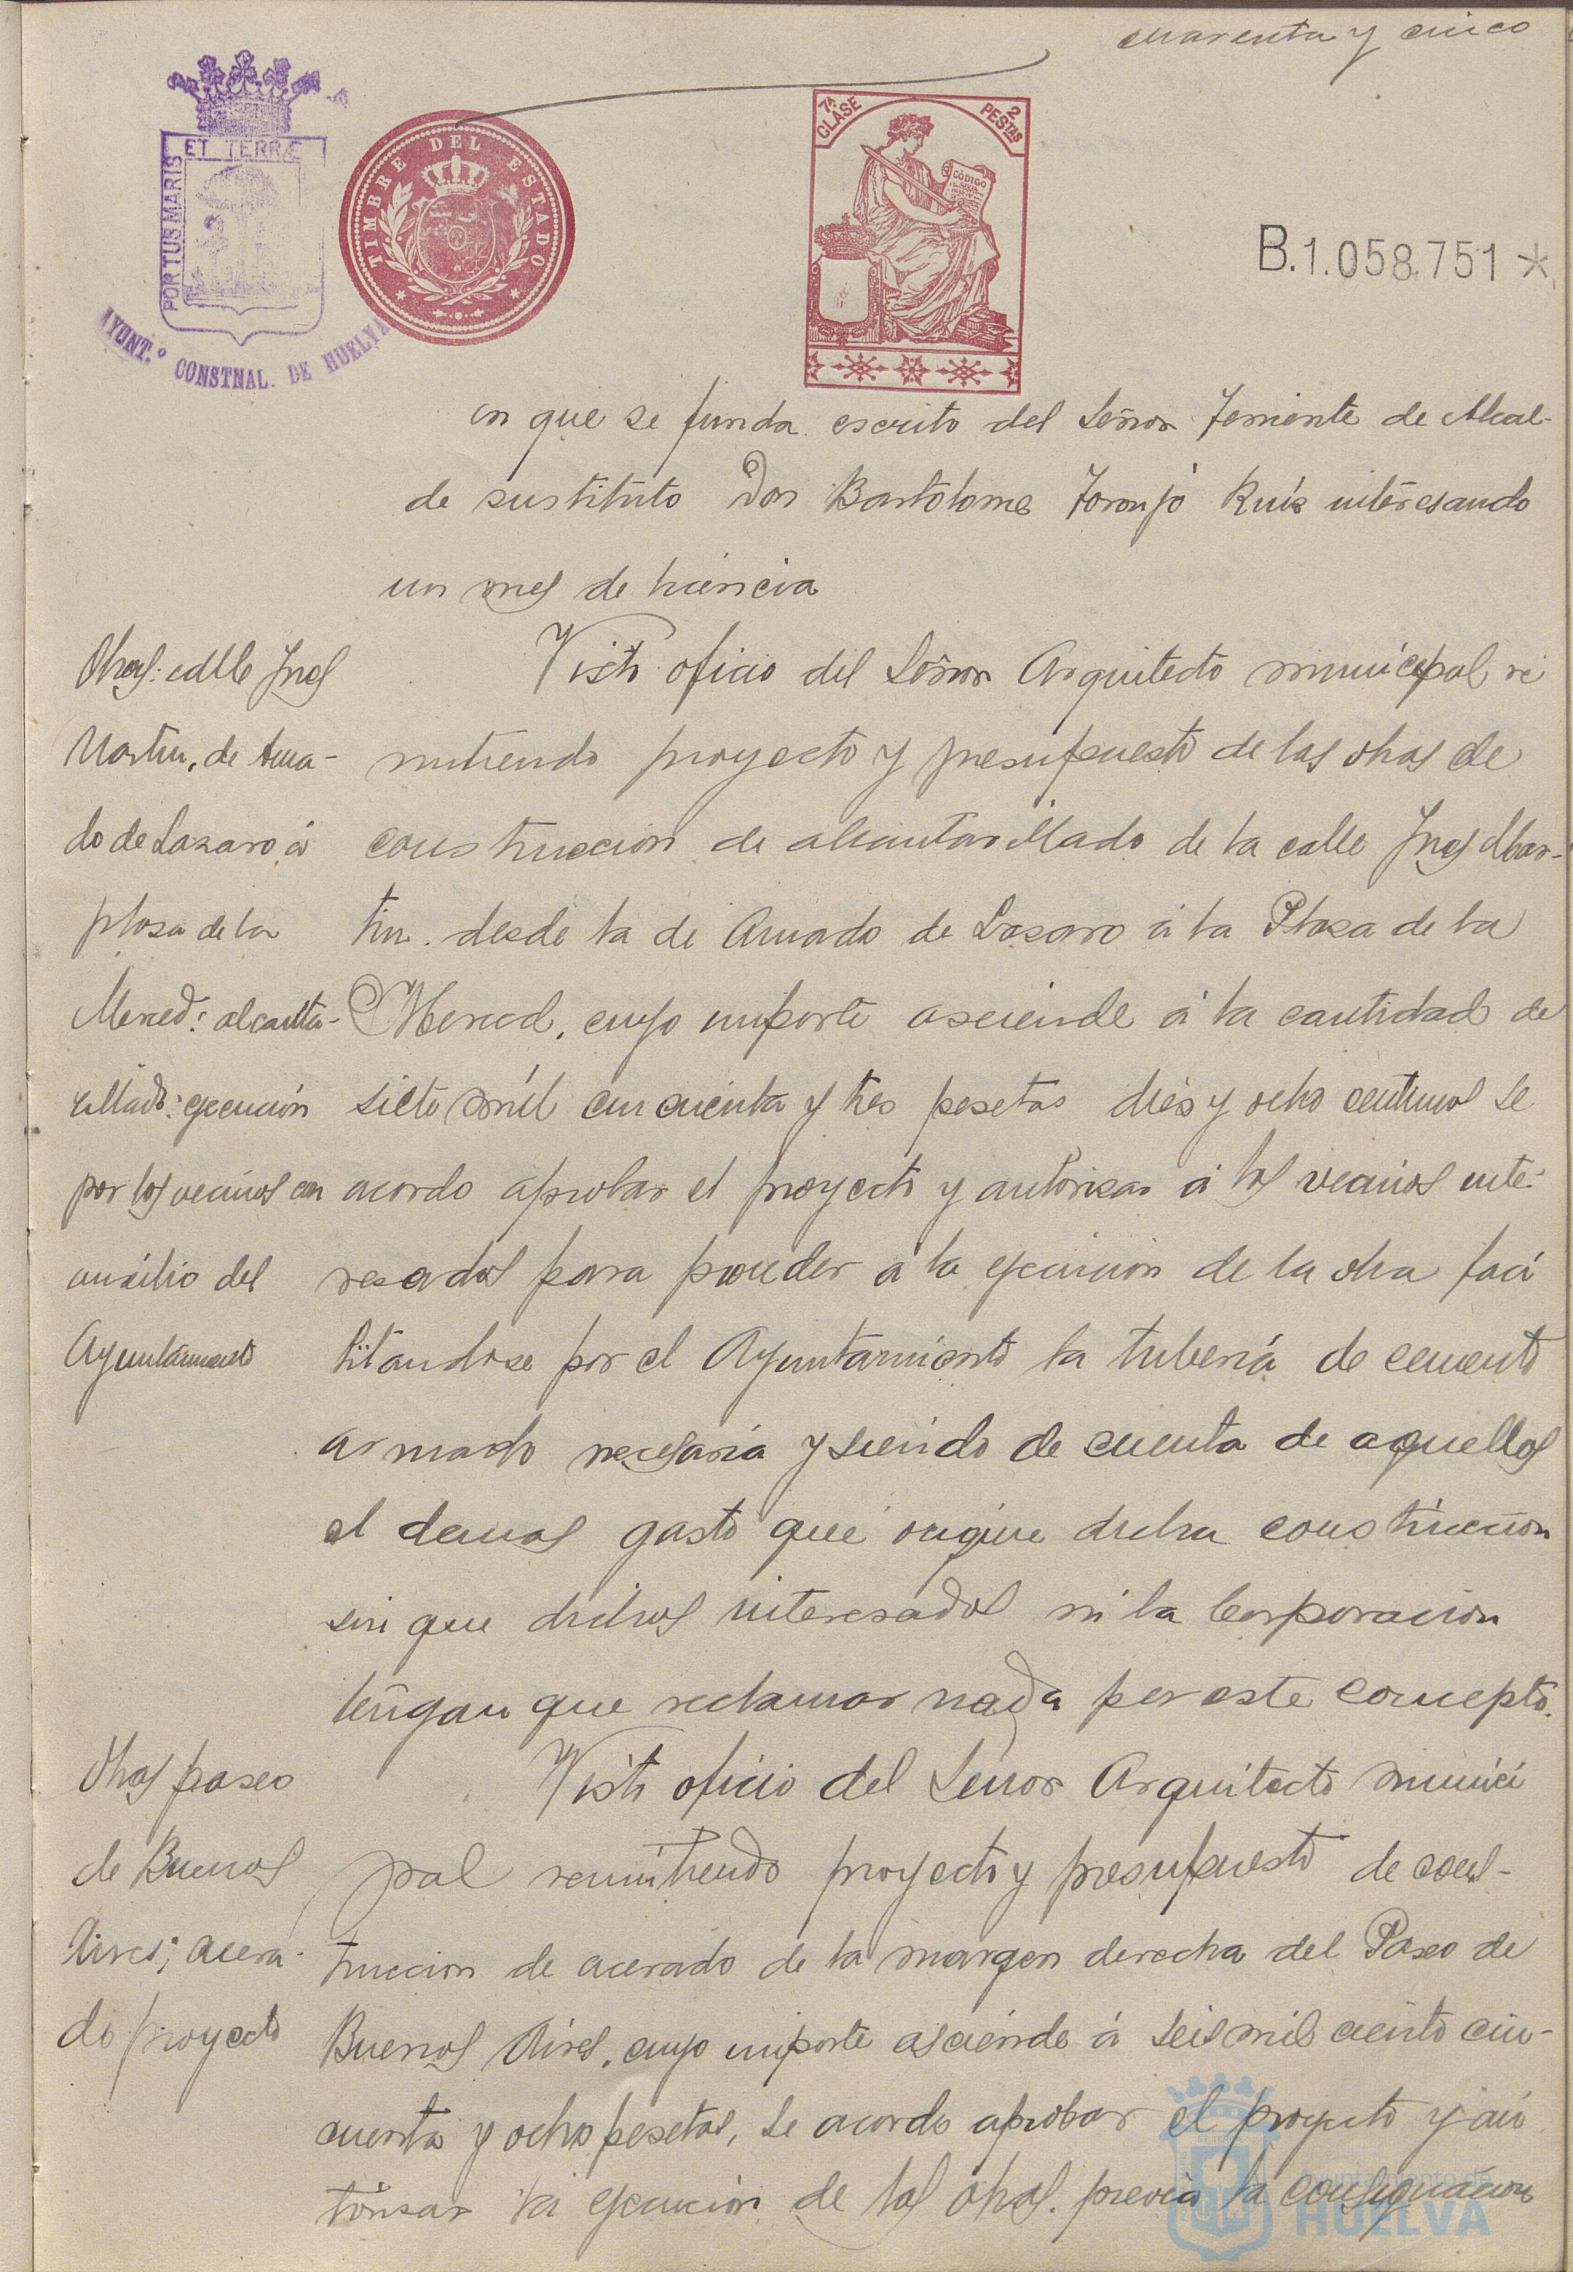 cuarenta y cinco
7ª CLASE
2 PESTAS
CÓDIGO
ET TERRÆ
PORTUS MARIS
AYUNT.º CONSTNAL. DE HUELVA
TIMBRE DEL ESTADO
B.1.058.751*
en que se funda escrito del Señor Teniente de Alcal-
de sustituto Don Bartolome Toronjo Ruiz interesando
un mes de licencia
Visto oficio del Señor Arquitecto municipal re
mitiendo proyecto y presupuesto de las obras de
construccion de alcantarillado de la calle Ines Mar-
tin. desde la de Amado de Lazaro á la Plaza de la
Merced, cuyo importe asciende á la cantidad de
siete mil cincuenta y tres pesetas dies y ocho centimos se
acordo aprobar el proyecto y autorizar á los vecinos inte-
resados para proceder á la ejecucion de la obra faci
litandose por el Ayuntamiento la tuberia de cemento
armado necesaria y siendo de cuenta de aquellos
el demas gasto que origine dicha construccion
sin que dichos interesados ni la Corporacion
tengan que reclamar nada por este concepto.
Visto oficio del Señor Arquitecto munici
pal remitiendo proyecto y presupuesto de cons-
truccion de acerado de la margen derecha del Paseo de
Buenos Aires, cuyo importe asciende á seis mil ciento cin-
cuenta y ocho pesetas, se acordo aprobar el proyecto y au
torisar la ejecucion de las obras. previa la consignacion
Obras: calle Ines
Martin, de Ama-
do de Lazaro á
plaza de la
Merced: alcanta-
rillado: ejecución
por los vecinos con
auxilio del
Ayuntamiento
Obras paseo
de Buenos
Aires; acera-
do proyecto
Ayuntamiento de
HUELVA